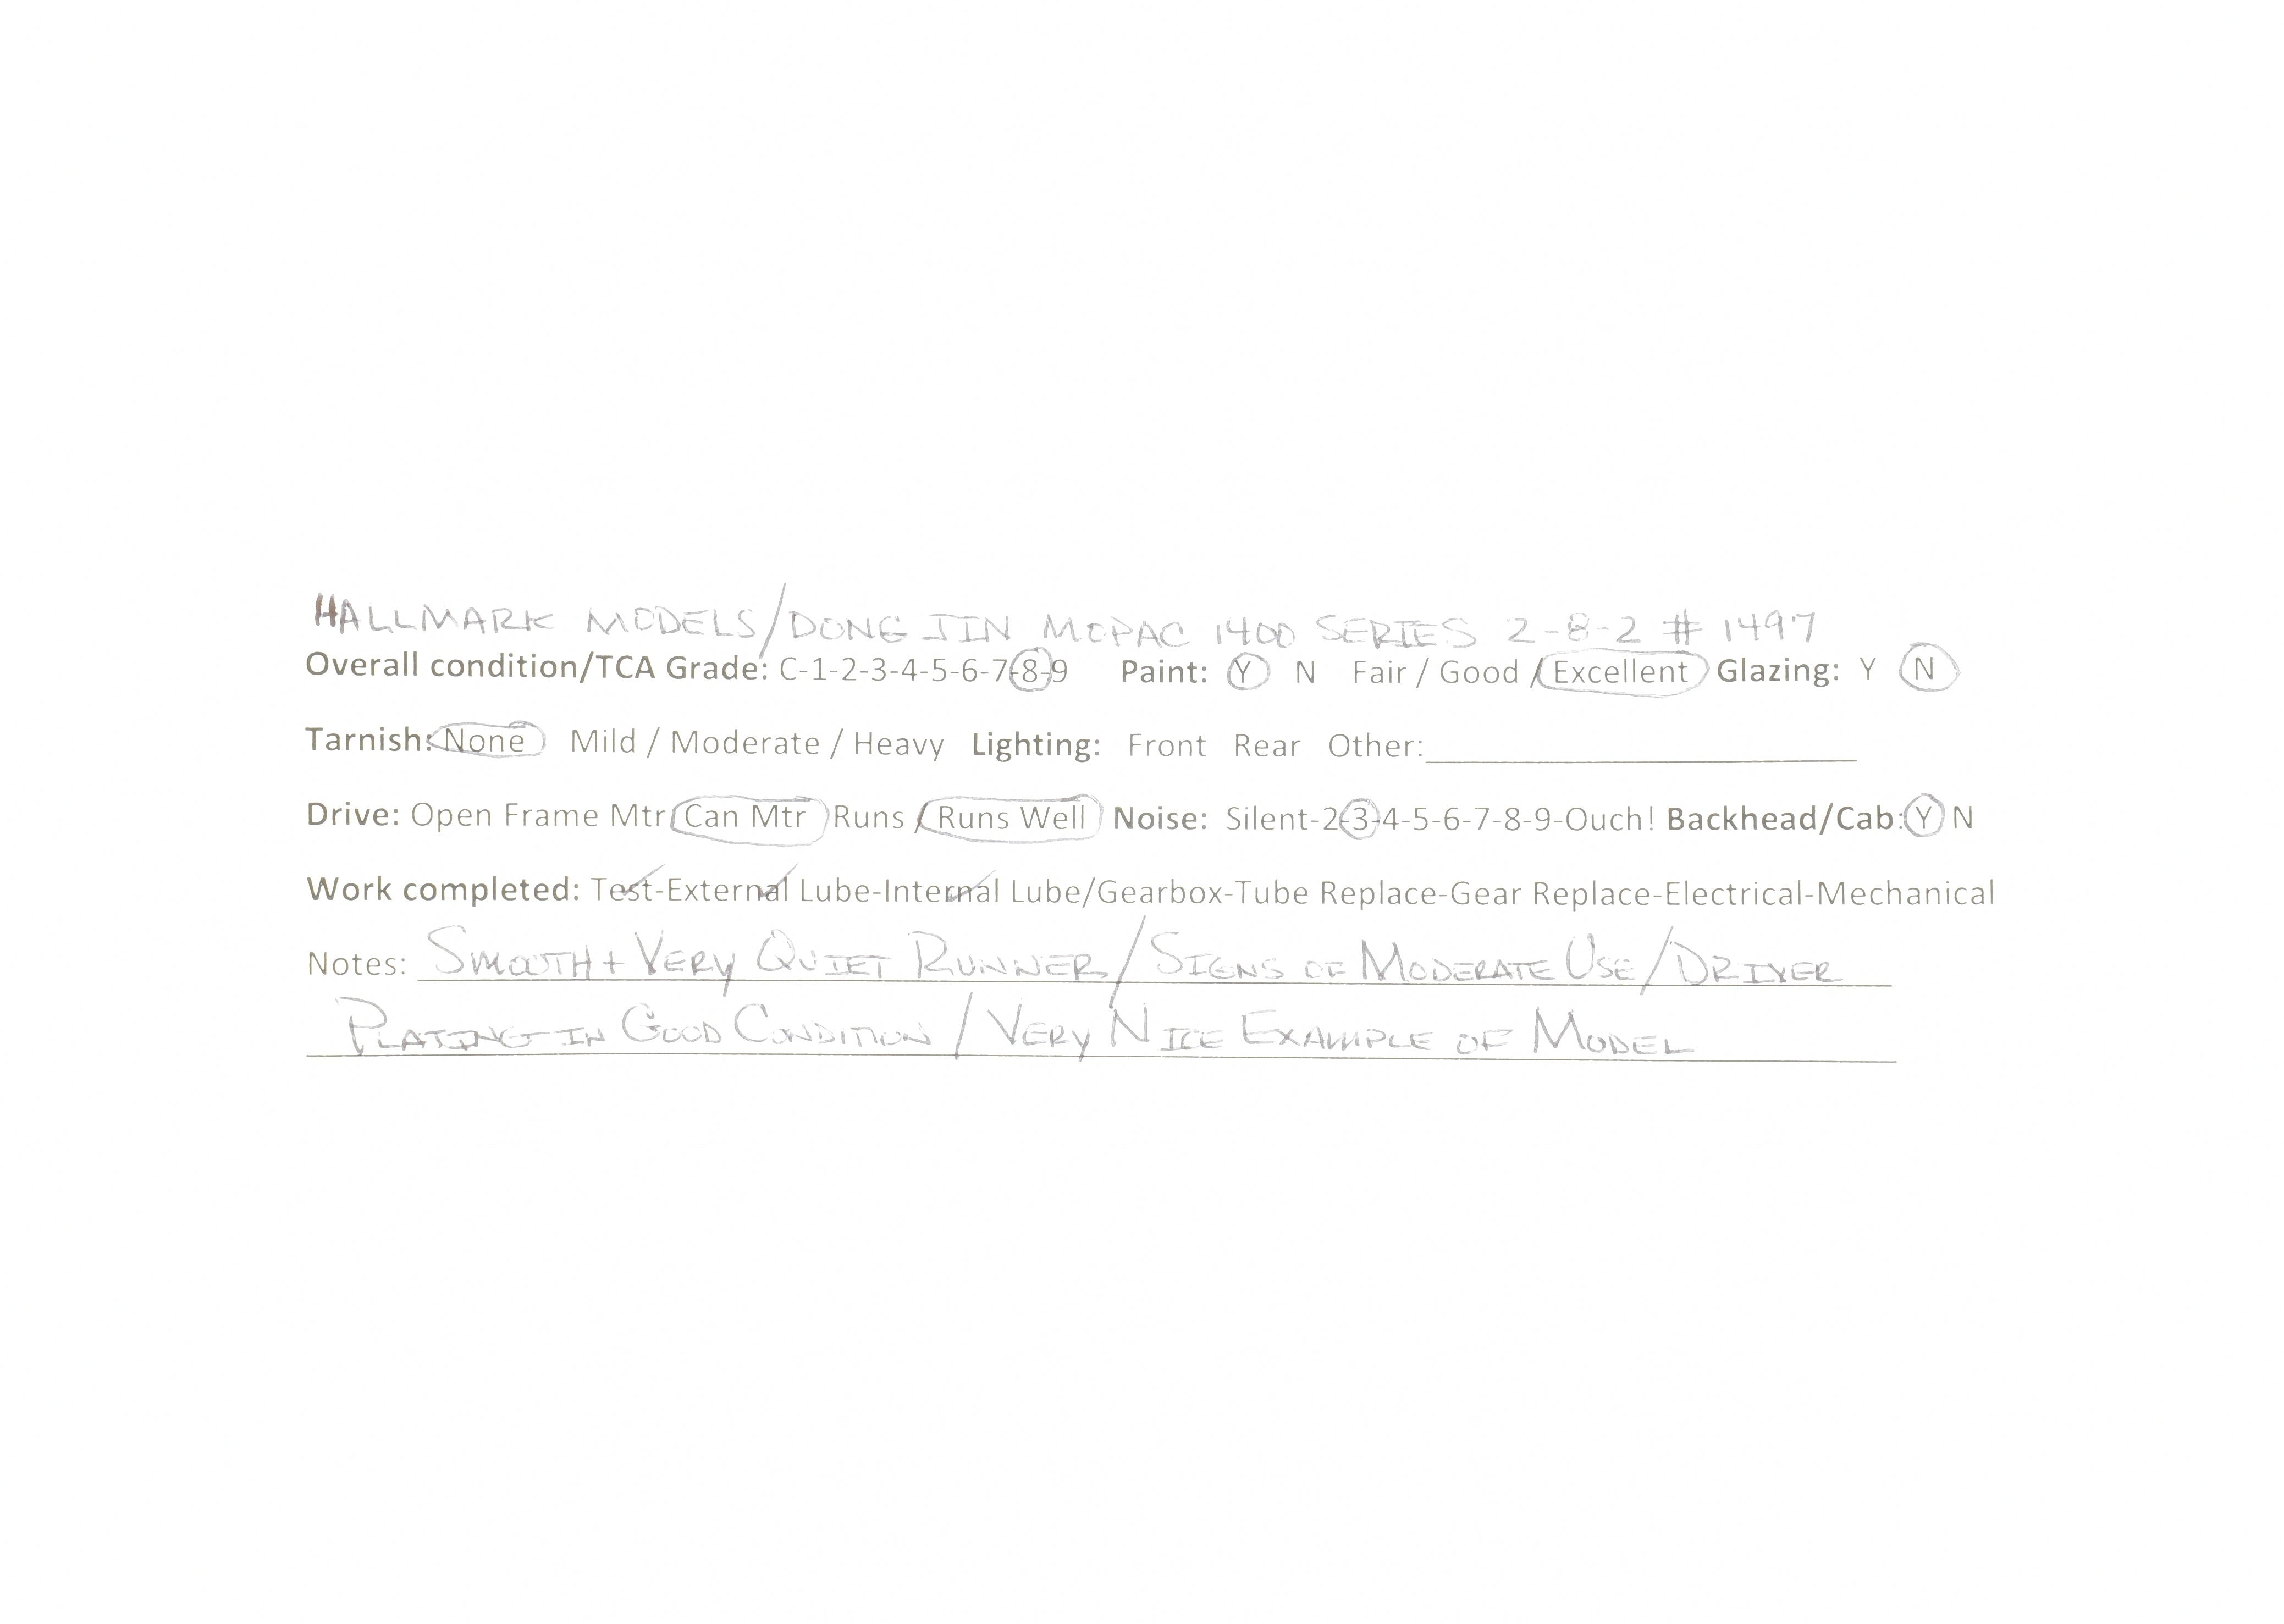 HALLMARK MODELS/DONG JIN MOPAC 1400 SERIES 2-8-2 # 1497
Overall condition/TCA Grade: C-1-2-3-4-5-6-7-8-9 Paint: Y N Fair / Good / Excellent Glazing: Y N
Tarnish: None Mild / Moderate / Heavy Lighting: Front Rear Other:
Drive: Open Frame Mtr Can Mtr Runs / Runs Well Noise: Silent-2-3-4-5-6-7-8-9-Ouch! Backhead/Cab: Y N
Work completed: Test-External Lube-Internal Lube/Gearbox-Tube Replace-Gear Replace-Electrical-Mechanical
Notes: SMOOTH + VERY QUIET RUNNER / SIGNS OF MODERATE USE / DRIVER
PLATING IN GOOD CONDITION / VERY NICE EXAMPLE OF MODEL